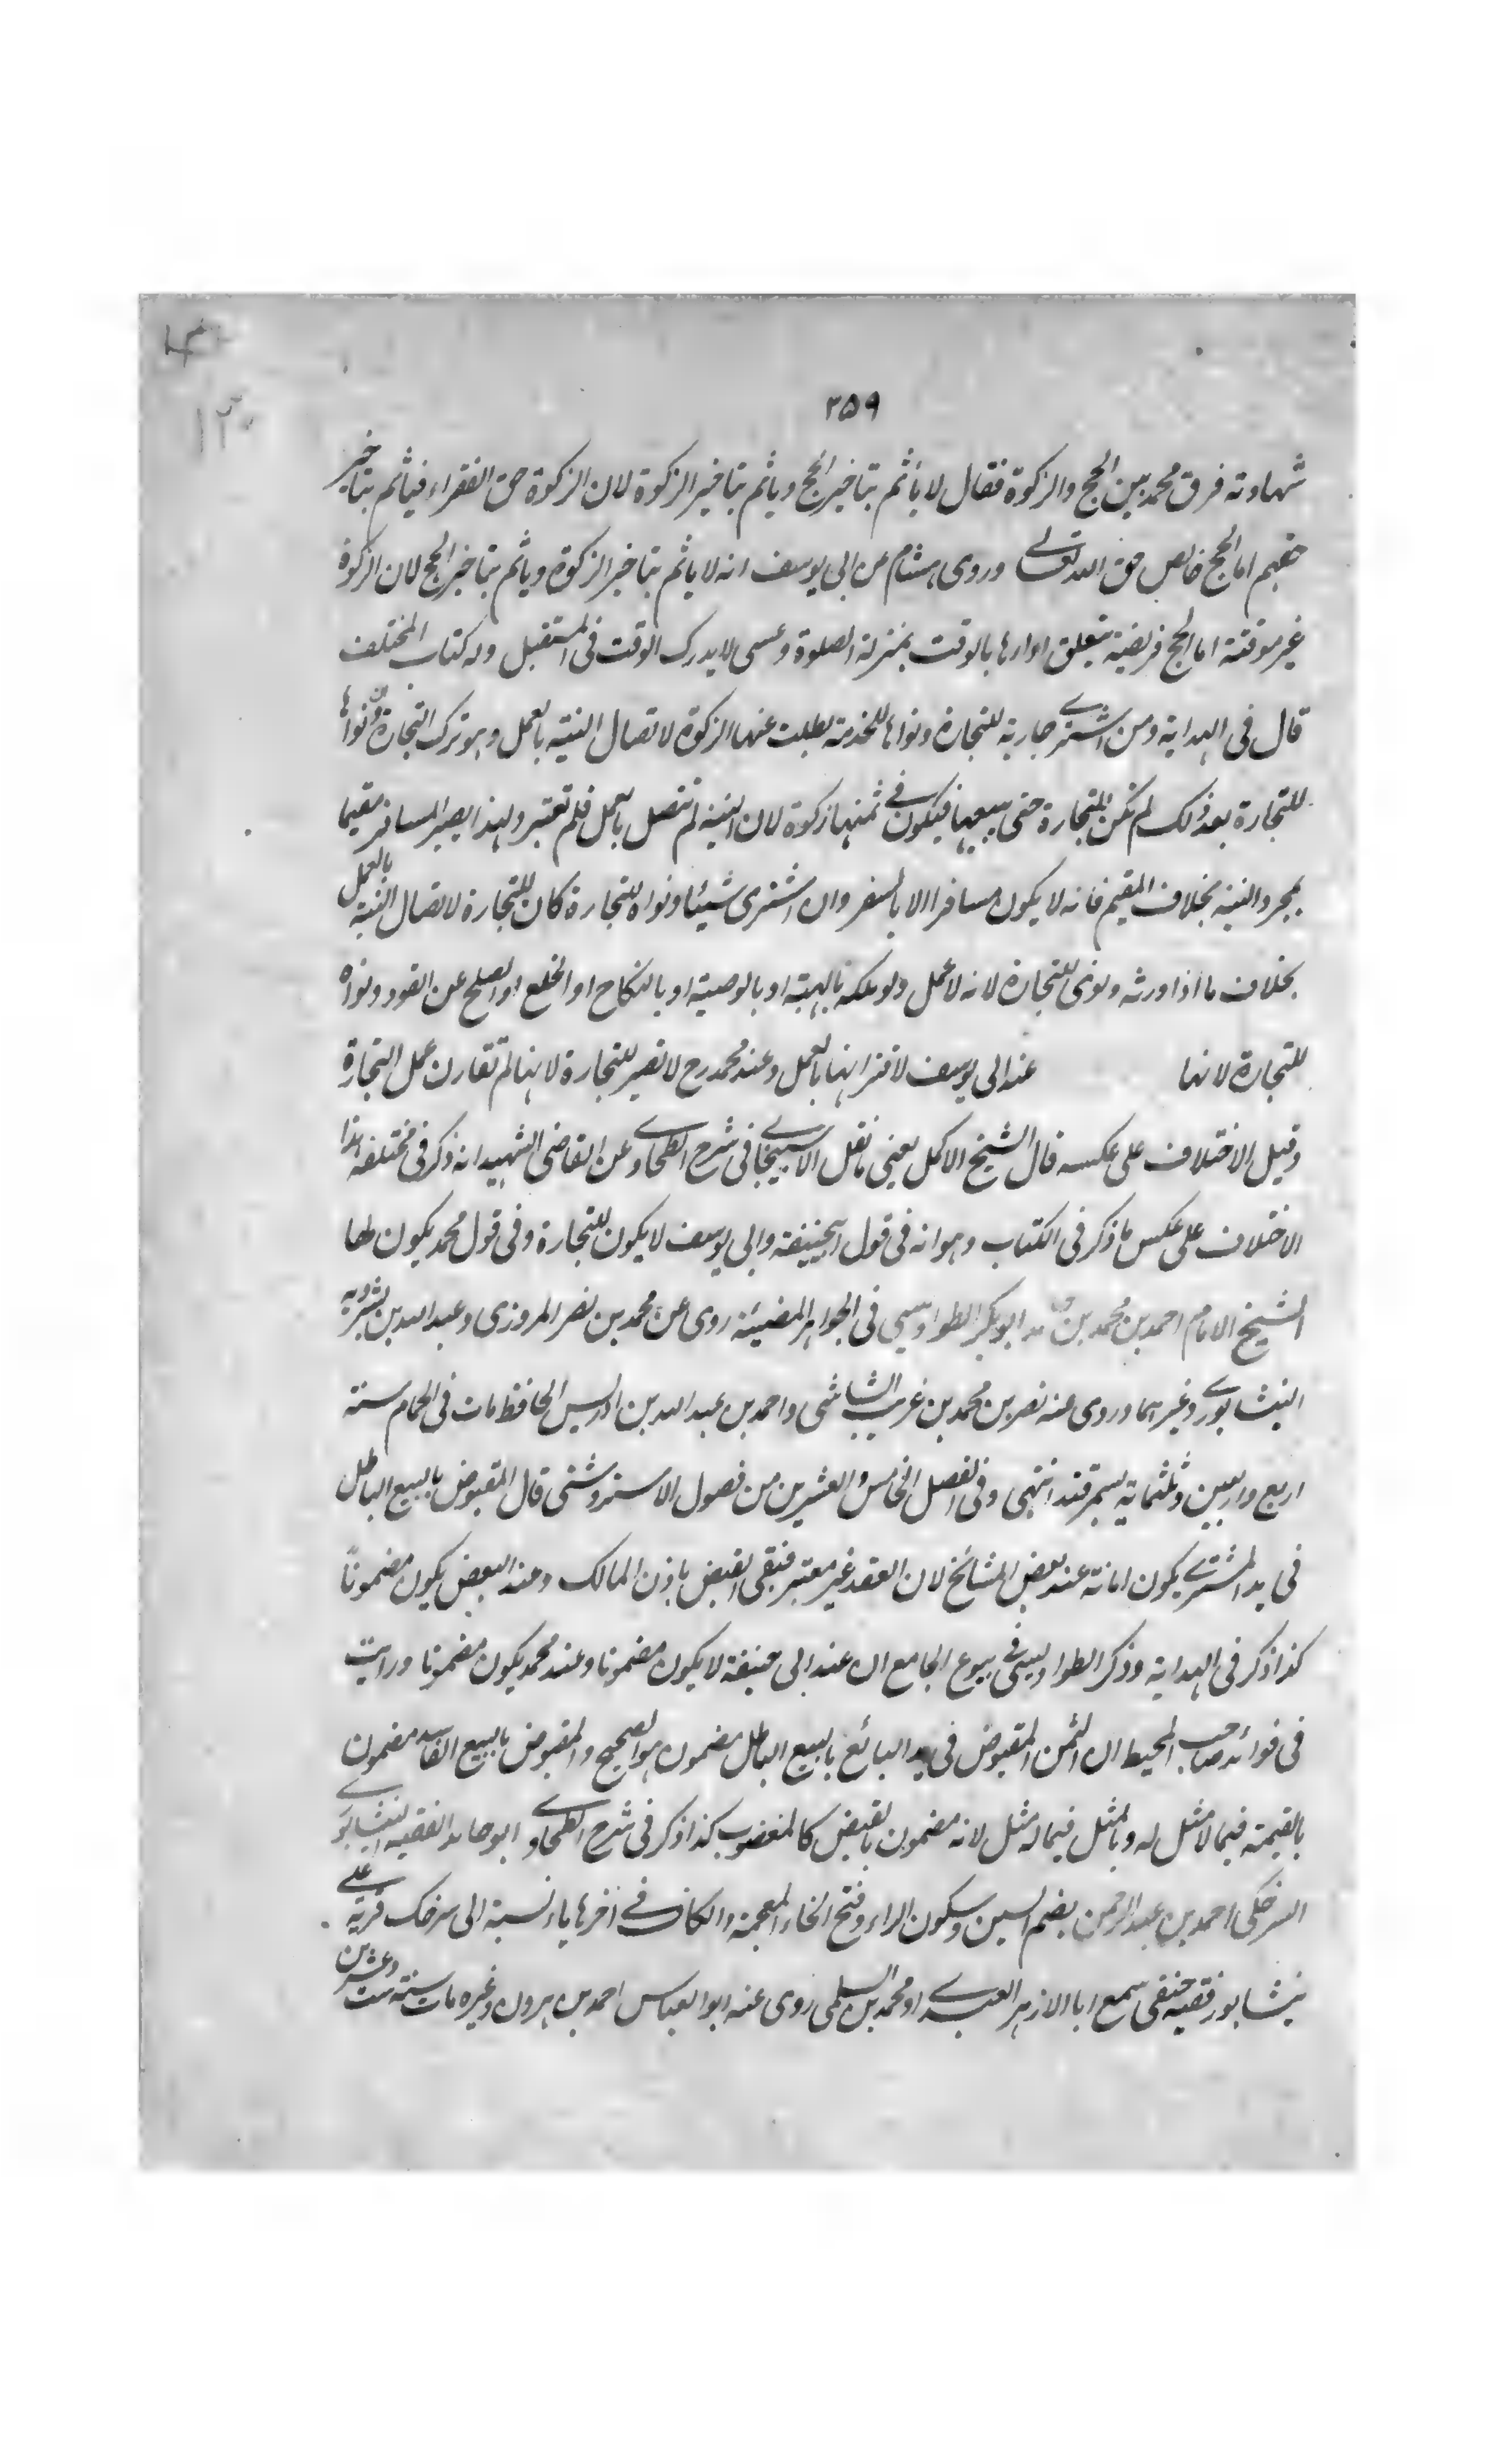 ٢٥٩
شهادته فرق محمد بين الحج والزكوة فقال لا يأثم بتاخير الحج وياثم بتاخير الزكوة لان الزكوة حق الفقراء فياثم بتاخير
حقهم اما الحج خالص حق الله تعالى وروى هشام عن ابى يوسف انه لا ياثم بتاخير الزكوة وياثم بتاخير الحج لان الزكوة
غير موقتة اما الحج فريضة يتعلق اداءها بالوقت بمنزلة الصلوة وعسى لا يدرك الوقت فى المستقبل وله كتاب المختلف
قال فى الهداية ومن اشترى جارية للتجارة ونواها للخدمة بطلت عنها الزكوة لاتصال النية بالعمل وهو ترك التجارة وان نواها
للتجارة بعد ذلك لم تكن للتجارة حتى يبيعها فيكون فى ثمنها زكوة لان النية لم تتصل بالعمل فلم تعتبر ولهذا يصير المسافر مقيما
بمجرد النية بخلاف المقيم فانه لا يكون مسافرا الا بالسفر وان اشترى شيئا ونواه للتجارة كان للتجارة لاتصال النية بالعمل
بخلاف ما اذا ورثه ونوى للتجارة لانه لا عمل ولو ملكه بالهبة او بالوصية او بالنكاح او الخلع او الصلح عن القود ونواه
للتجارة لانها عند ابى يوسف لاقترانها بالعمل وعند محمد رح لا تصير للتجارة لانها لم تقارن عمل التجارة
وقيل الاختلاف على عكسه قال الشيخ الاكمل يعنى ما نقل الاسبيجابى فى شرح الطحاوى عن القاضى الشهيد انه ذكر فى مختلفه هذا
الاختلاف على عكس ما ذكر فى الكتاب وهو انه فى قول ابيحنيفة وابى يوسف لا يكون للتجارة وفى قول محمد يكون لها
الشيخ الامام احمد بن محمد بن ابو بكر الطواويسى فى الجواهر المضيئة روى عن محمد بن نصر المروزى وعبد الله بن شيرويه
النيشابورى وغيرهما وروى عنه نصر بن محمد بن غريب الشاشى واحمد بن عبد الله بن ادريس الحافظ مات فى الحمام سنة
اربع واربعين وثلثماية بسمرقند انتهى وفى الفصل الخامس والعشرين من فصول الاستروشنى قال المقبوض بالبيع الباطل
فى يد المشترى يكون امانة عند بعض المشائخ لان العقد غير معتبر فبقى القبض باذن المالك وعند البعض يكون مضمونًا
كذا ذكر فى الهداية وذكر الطواويسى فى بيوع الجامع ان عند ابى حنيفة لا يكون مضمونا وعند محمد يكون مضمونا ورايت
فى فوائد صاحب المحيط ان الثمن المقبوض فى يد البائع بالبيع الباطل مضمون هو الصحيح والمقبوض بالبيع الفاسد مضمون
بالقيمة فيما لا مثل له وبالمثل فيما له مثل لانه مضمون بالقبض كالمغصوب كذا ذكر فى شرح الطحاوى ابو حامد الفقيه النيشابورى
السرخكى احمد بن عبد الرحمن بضم السين وسكون الراء وفتح الخاء المعجمة والكاف فى آخرها ياء نسبة الى سرخك قرية على
نيشابور فقيه حنفى سمع ابا الازهر العبدى ومحمد بن السلمى روى عنه ابو العباس احمد بن هرون وغيره مات سنة ست وعشرين